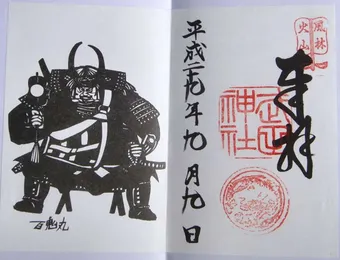 風林
火山
奉拝
神社
平成二九年九月九日
百鬼丸